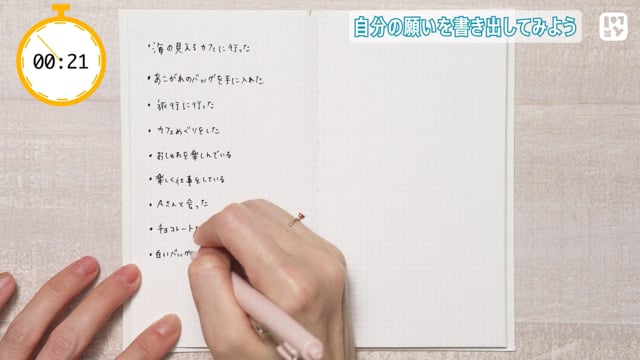 自分の願いを書き出してみよう
00:21
・海の見えるカフェに行った
・あこがれのバッグを手に入れた
・旅行に行った
・カフェめぐりをした
・おしゃれを楽しんでいる
・楽しく仕事をしている
・Aさんと会った
・チョコレート
・白いバッグ